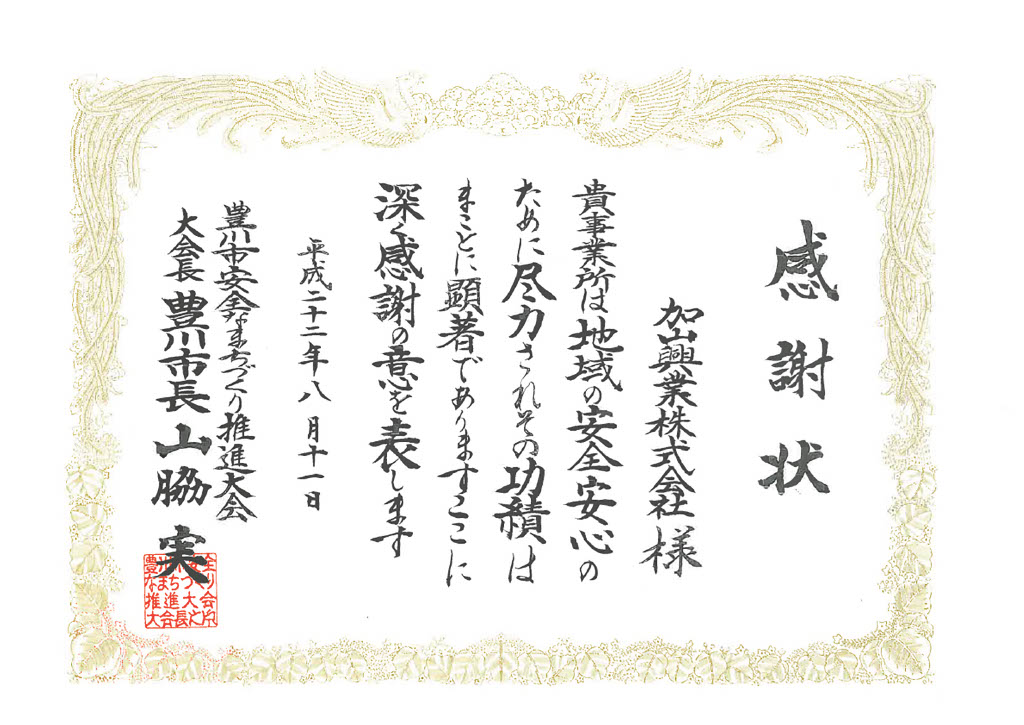 感謝状
加山興業株式会社 様
貴事業所は地域の安全安心の
ために尽力されその功績は
まことに顕著でありますここに
深く感謝の意を表します
平成二十二年八月十一日
豊川市安全なまちづくり推進大会
大会長 豊川市長 山脇 実